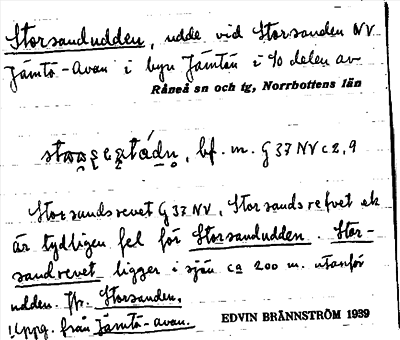 Storsandudden, udde vid Storsanden NV
Jämtö-Avan i byn Jämtön i SO delen av
Råneå sn och tg, Norrbottens län
bf. m. G 37 NV c 2, 9
Storsandsrevet G 37 NV, Storsandsrefvet ek
är tydligen fel för Storsandudden. Stor-
sandrevet ligger i sjön ca 200 m. utanför
udden. Jfr. Storsanden.
Uppg. från Jämtö-avan.
EDVIN BRÄNNSTRÖM 1939